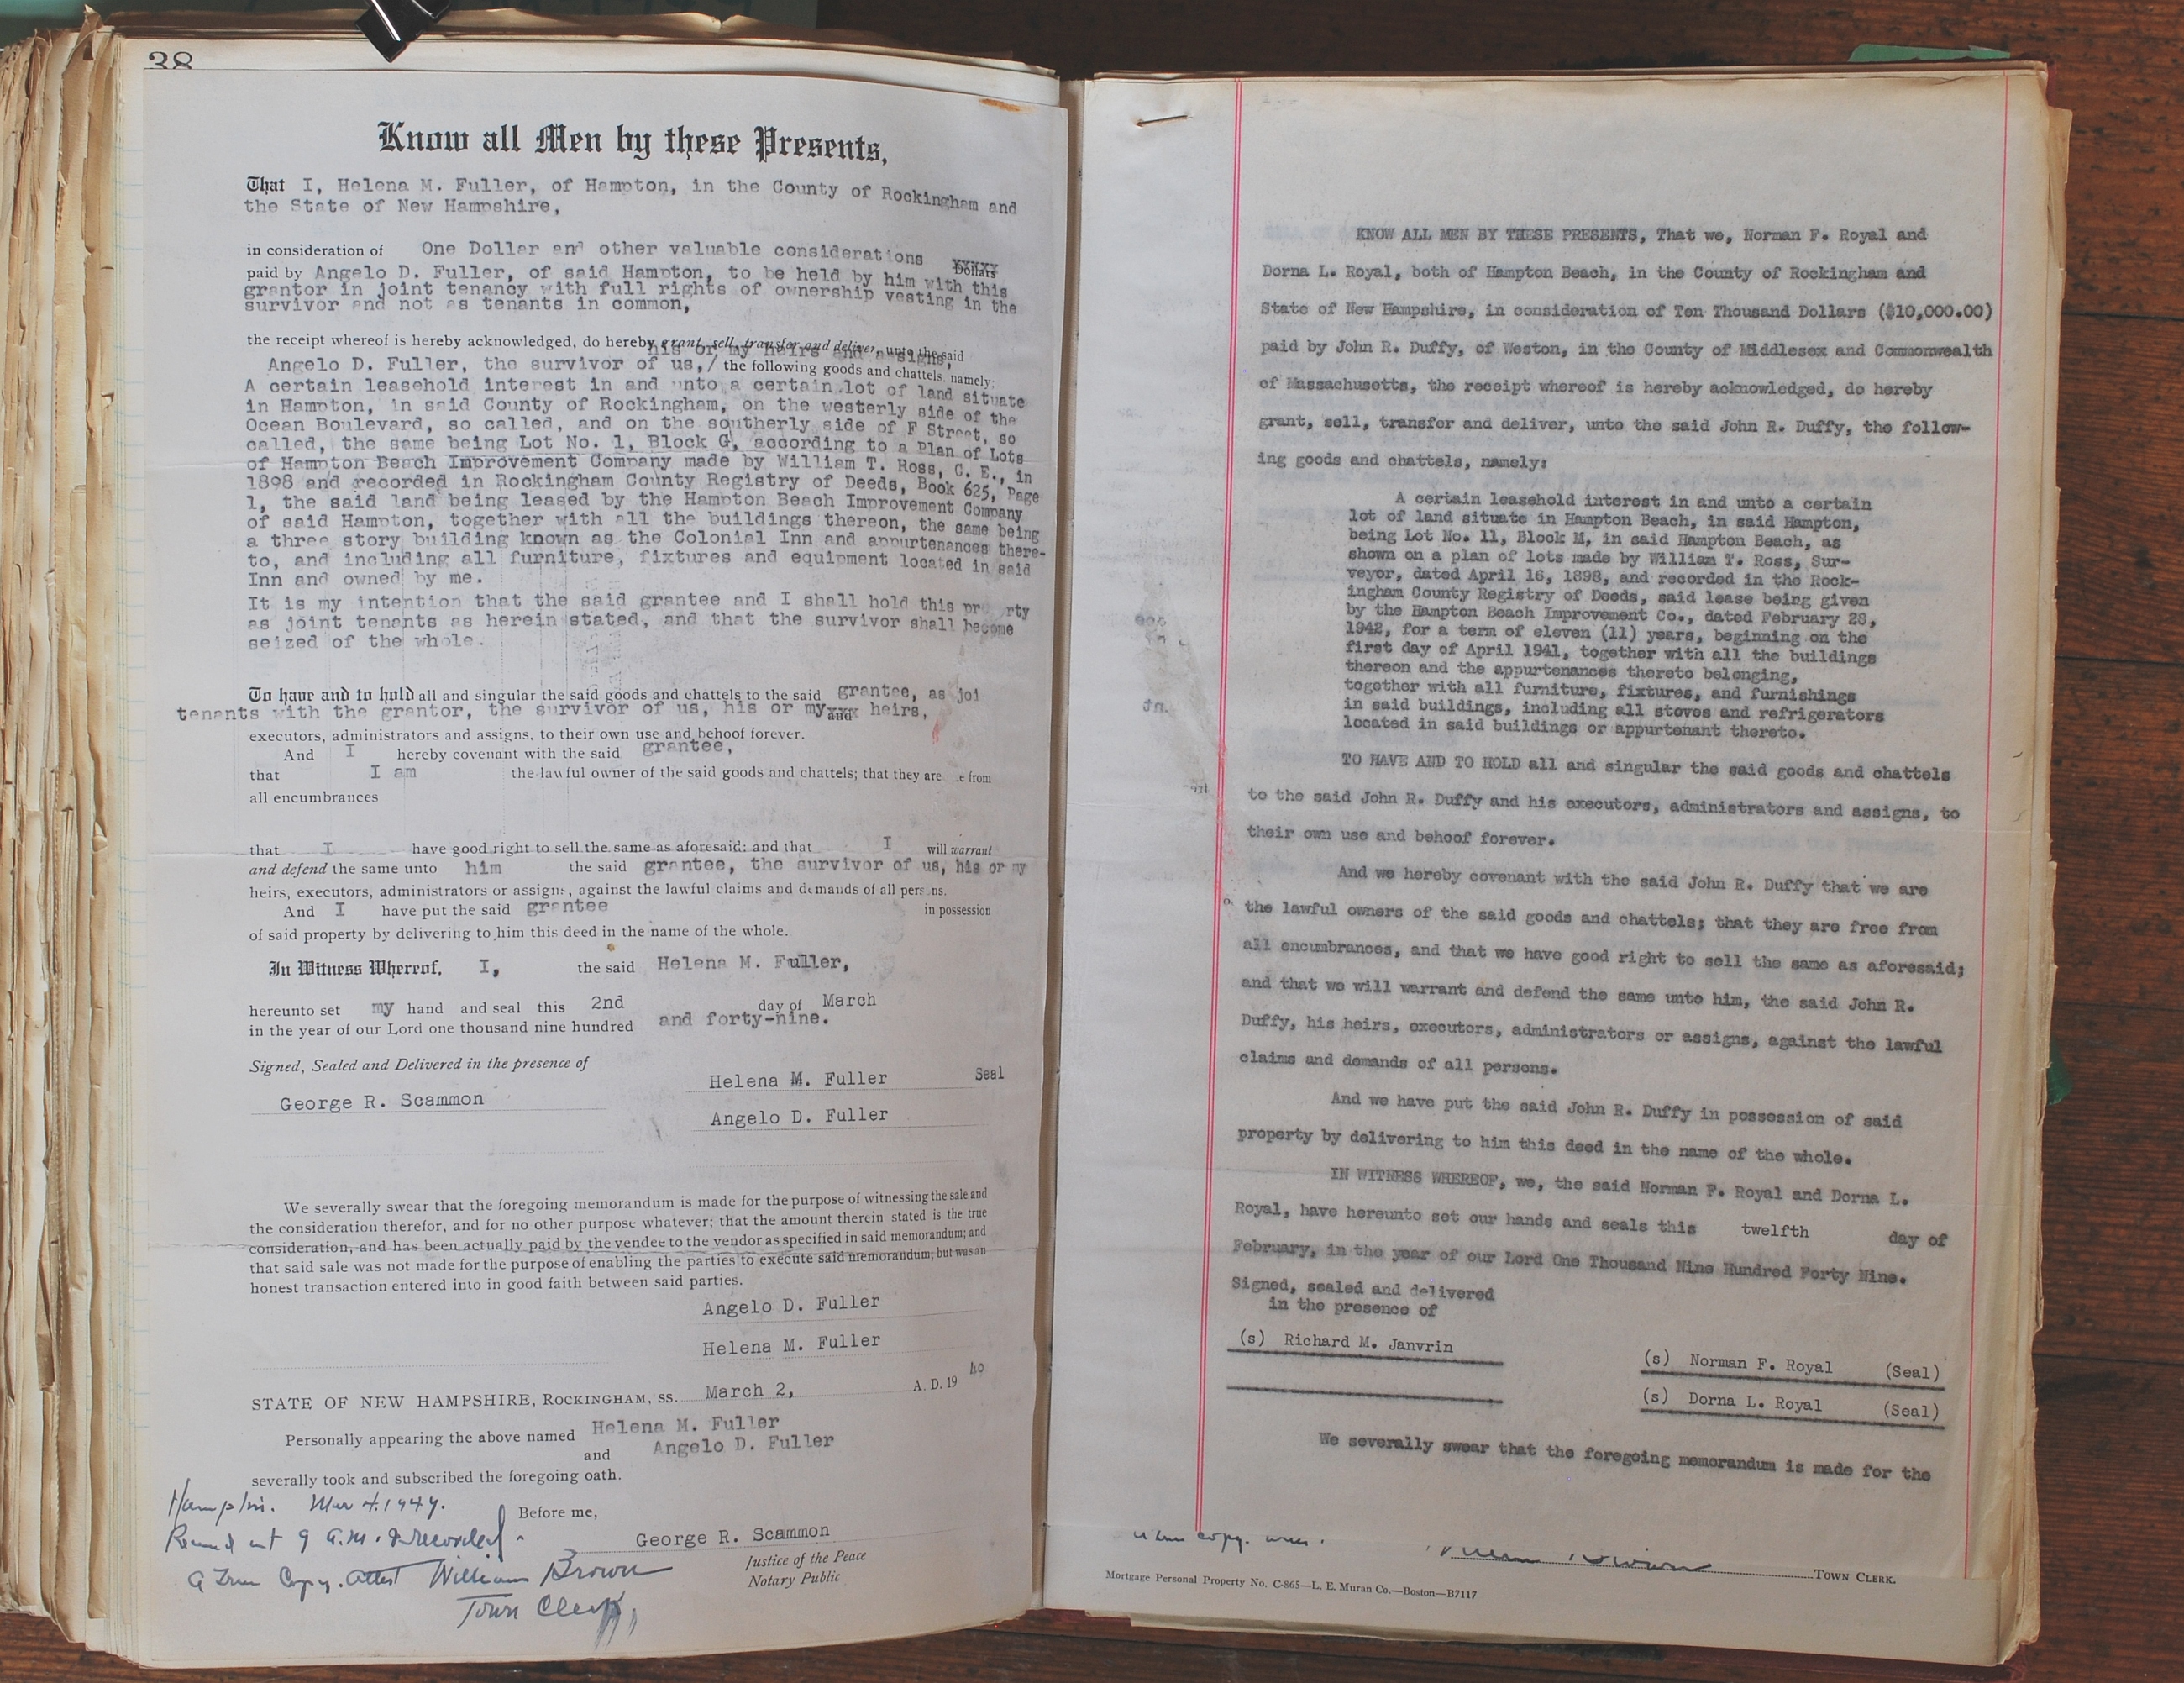 38
Know all Men by these Presents,
That I, Helena M. Fuller, of Hampton, in the County of Rockingham and
the State of New Hampshire,
in consideration of One Dollar and other valuable considerations
xxxxx Dollars
paid by Angelo D. Fuller, of said Hampton, to be held by him with this
grantor in joint tenancy with full rights of ownership vesting in the
survivor and not as tenants in common,
the receipt whereof is hereby acknowledged, do hereby grant, sell, transfer and deliver, unto the said
his or my heirs and assigns,
Angelo D. Fuller, the survivor of us,/ the following goods and chattels, namely:
A certain leasehold interest in and unto a certain lot of land situate
in Hampton, in said County of Rockingham, on the westerly side of the
Ocean Boulevard, so called, and on the southerly side of F Street, so
called, the same being Lot No. 1, Block G, according to a Plan of Lots
of Hampton Beach Improvement Company made by William T. Ross, C. E., in
1898 and recorded in Rockingham County Registry of Deeds, Book 625, Page
1, the said land being leased by the Hampton Beach Improvement Company
of said Hampton, together with all the buildings thereon, the same being
a three story building known as the Colonial Inn and appurtenances there-
to, and including all furniture, fixtures and equipment located in said
Inn and owned by me.
It is my intention that the said grantee and I shall hold this pr rty
as joint tenants as herein stated, and that the survivor shall become
seized of the whole.
To have and to hold all and singular the said goods and chattels to the said grantee, as joi
tenants with the grantor, the survivor of us, his or my xxx and heirs,
executors, administrators and assigns, to their own use and behoof forever.
And I hereby covenant with the said grantee,
that I am the lawful owner of the said goods and chattels; that they are e from
all encumbrances
that I have good right to sell the same as aforesaid: and that I will warrant
and defend the same unto him the said grantee, the survivor of us, his or my
heirs, executors, administrators or assigns, against the lawful claims and demands of all persons.
And I have put the said grantee in possession
of said property by delivering to him this deed in the name of the whole.
In Witness Whereof, I, the said Helena M. Fuller,
hereunto set my hand and seal this 2nd day of March
in the year of our Lord one thousand nine hundred and forty-nine.
Signed, Sealed and Delivered in the presence of
Helena M. Fuller Seal
George R. Scammon
Angelo D. Fuller
We severally swear that the foregoing memorandum is made for the purpose of witnessing the sale and
the consideration therefor, and for no other purpose whatever; that the amount therein stated is the true
consideration, and has been actually paid by the vendee to the vendor as specified in said memorandum; and
that said sale was not made for the purpose of enabling the parties to execute said memorandum; but was an
honest transaction entered into in good faith between said parties.
Angelo D. Fuller
Helena M. Fuller
STATE OF NEW HAMPSHIRE, ROCKINGHAM, SS. March 2, A. D. 19
Personally appearing the above named Helena M. Fuller
and Angelo D. Fuller
severally took and subscribed the foregoing oath.
Hampton. Mar 4. 1949.
Before me,
Received at 9 A.M. & recorded
George R. Scammon
Justice of the Peace
Notary Public
A True Copy. Attest William Brown
Town Clerk
KNOW ALL MEN BY THESE PRESENTS, That we, Norman F. Royal and
Dorna L. Royal, both of Hampton Beach, in the County of Rockingham and
State of New Hampshire, in consideration of Ten Thousand Dollars ($10,000.00)
paid by John R. Duffy, of Weston, in the County of Middlesex and Commonwealth
of Massachusetts, the receipt whereof is hereby acknowledged, do hereby
grant, sell, transfer and deliver, unto the said John R. Duffy, the follow-
ing goods and chattels, namely:
A certain leasehold interest in and unto a certain
lot of land situate in Hampton Beach, in said Hampton,
being Lot No. 11, Block M, in said Hampton Beach, as
shown on a plan of lots made by William T. Ross, Sur-
veyor, dated April 16, 1898, and recorded in the Rock-
ingham County Registry of Deeds, said lease being given
by the Hampton Beach Improvement Co., dated February 28,
1942, for a term of eleven (11) years, beginning on the
first day of April 1941, together with all the buildings
thereon and the appurtenances thereto belonging,
together with all furniture, fixtures, and furnishings
in said buildings, including all stoves and refrigerators
located in said buildings or appurtenant thereto.
TO HAVE AND TO HOLD all and singular the said goods and chattels
to the said John R. Duffy and his executors, administrators and assigns, to
their own use and behoof forever.
And we hereby covenant with the said John R. Duffy that we are
the lawful owners of the said goods and chattels; that they are free from
all encumbrances, and that we have good right to sell the same as aforesaid;
and that we will warrant and defend the same unto him, the said John R.
Duffy, his heirs, executors, administrators or assigns, against the lawful
claims and demands of all persons.
And we have put the said John R. Duffy in possession of said
property by delivering to him this deed in the name of the whole.
IN WITNESS WHEREOF, we, the said Norman F. Royal and Dorna L.
Royal, have hereunto set our hands and seals this twelfth day of
February, in the year of our Lord One Thousand Nine Hundred Forty Nine.
Signed, sealed and delivered
in the presence of
(s) Richard M. Janvrin
(s) Norman F. Royal (Seal)
(s) Dorna L. Royal (Seal)
We severally swear that the foregoing memorandum is made for the
TOWN CLERK.
Mortgage Personal Property No. C-865—L. E. Muran Co.—Boston—B7117